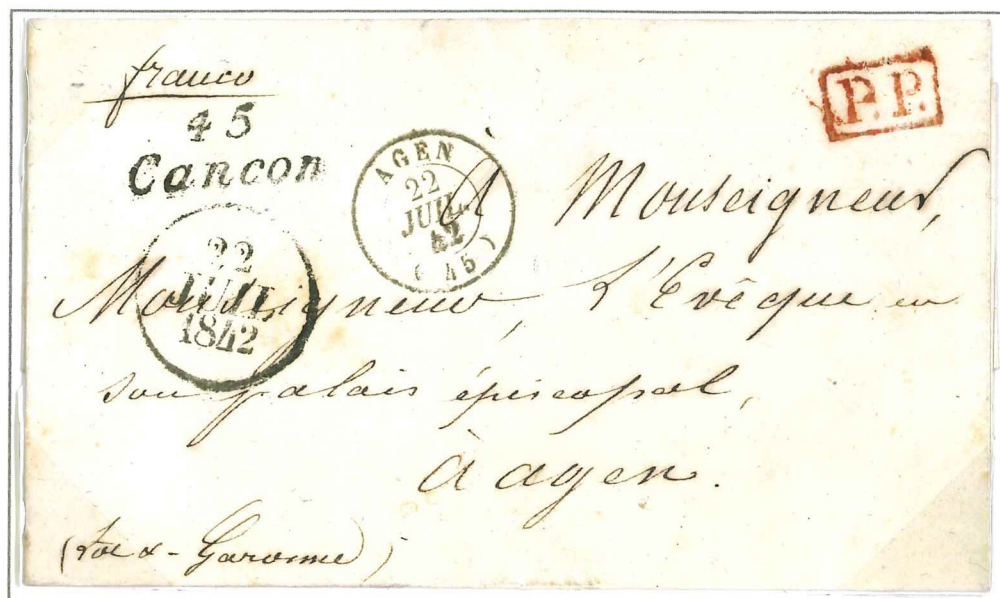 franco
P.P.
45
Cancon
AGEN
22
JUIL.
42
(45)
22
JUIL
1842
A Monseigneur,
Monseigneur, L'Evêque en
son palais épiscopal,
à agen.
(Lot & - Garonne)